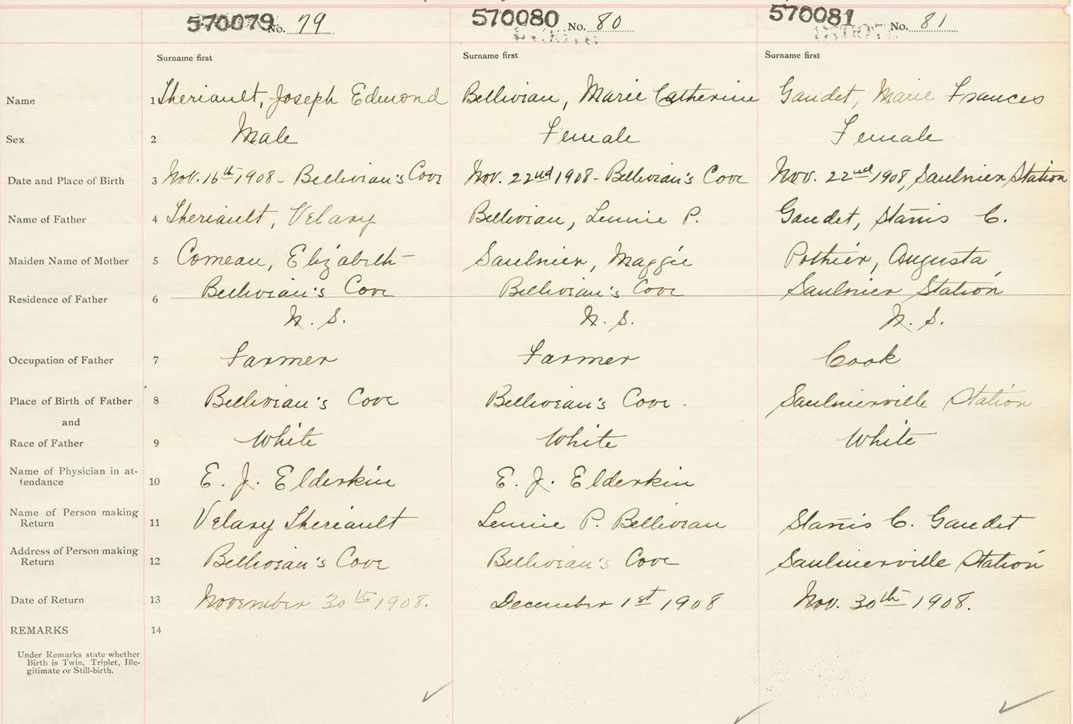 570079 No. 79 570080 No. 80 570081 No. 81
Surname first Surname first Surname first
Name 1 Theriault, Joseph Edmond Bellivian, Marie Catherine Gaudet, Marie Frances
Sex 2 Male Female Female
Date and Place of Birth 3 Nov. 16th 1908 - Bellivian's Cove Nov. 22nd 1908 - Bellivian's Cove Nov. 22nd 1908, Saulnier Station
Name of Father 4 Theriault, Velasy Bellivian, Lennie P. Gaudet, Stanis C.
Maiden Name of Mother 5 Comeau, Elizabeth Saulnier, Maggie Pothier, Augusta
Residence of Father 6 Bellivian's Cove Bellivian's Cove Saulnier Station
N. S. N. S. N. S.
Occupation of Father 7 Farmer Farmer Cook
Place of Birth of Father 8 Bellivian's Cove Bellivian's Cove. Saulnierville Station
and
Race of Father 9 White White White
Name of Physician in at-
tendance 10 E. J. Elderkin E. J. Elderkin
Name of Person making
Return 11 Velasy Theriault Lennie P. Bellivian Stanis C. Gaudet
Address of Person making
Return 12 Bellivian's Cove Bellivian's Cove Saulnierville Station
Date of Return 13 November 30th 1908. December 1st 1908 Nov. 30th 1908.
REMARKS 14
Under Remarks state whether
Birth is Twin, Triplet, Ille-
gitimate or Still-birth.